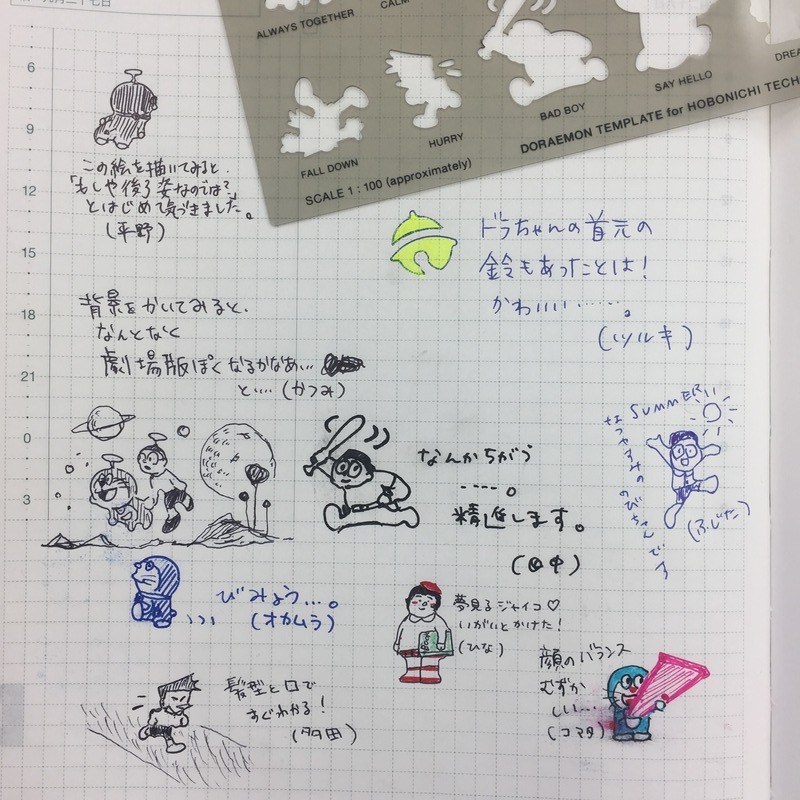 ALWAYS TOGETHER
CALM
FALL DOWN
HURRY
BAD BOY
SAY HELLO
SCALE 1 : 100 (approximately)
DORAEMON TEMPLATE for HOBONICHI TECH
6
9
12
15
18
21
0
3
この絵を描いてみると、
「もしや後ろ姿なのでは?」
とはじめて気づきました。
(平野)
ドラちゃんの首元の
鈴もあったことは!
かわいい……。
(ツルキ)
背景をかいてみると、
なんとなく
劇場版ぽくなるかなあ…
と… (かつみ)
なんかちがう
----。
精進します。
(田中)
SUMMER!!
なつやすみののびちゃんでーす
(ふじた)
びみょう…。
(オカムラ)
夢見るジャイコ♡
いがいとかけた!
(ひな)
Book
髪型と口で
すぐわかる!
(多田)
顔のバランス
むずか
しい…
(コマタ)